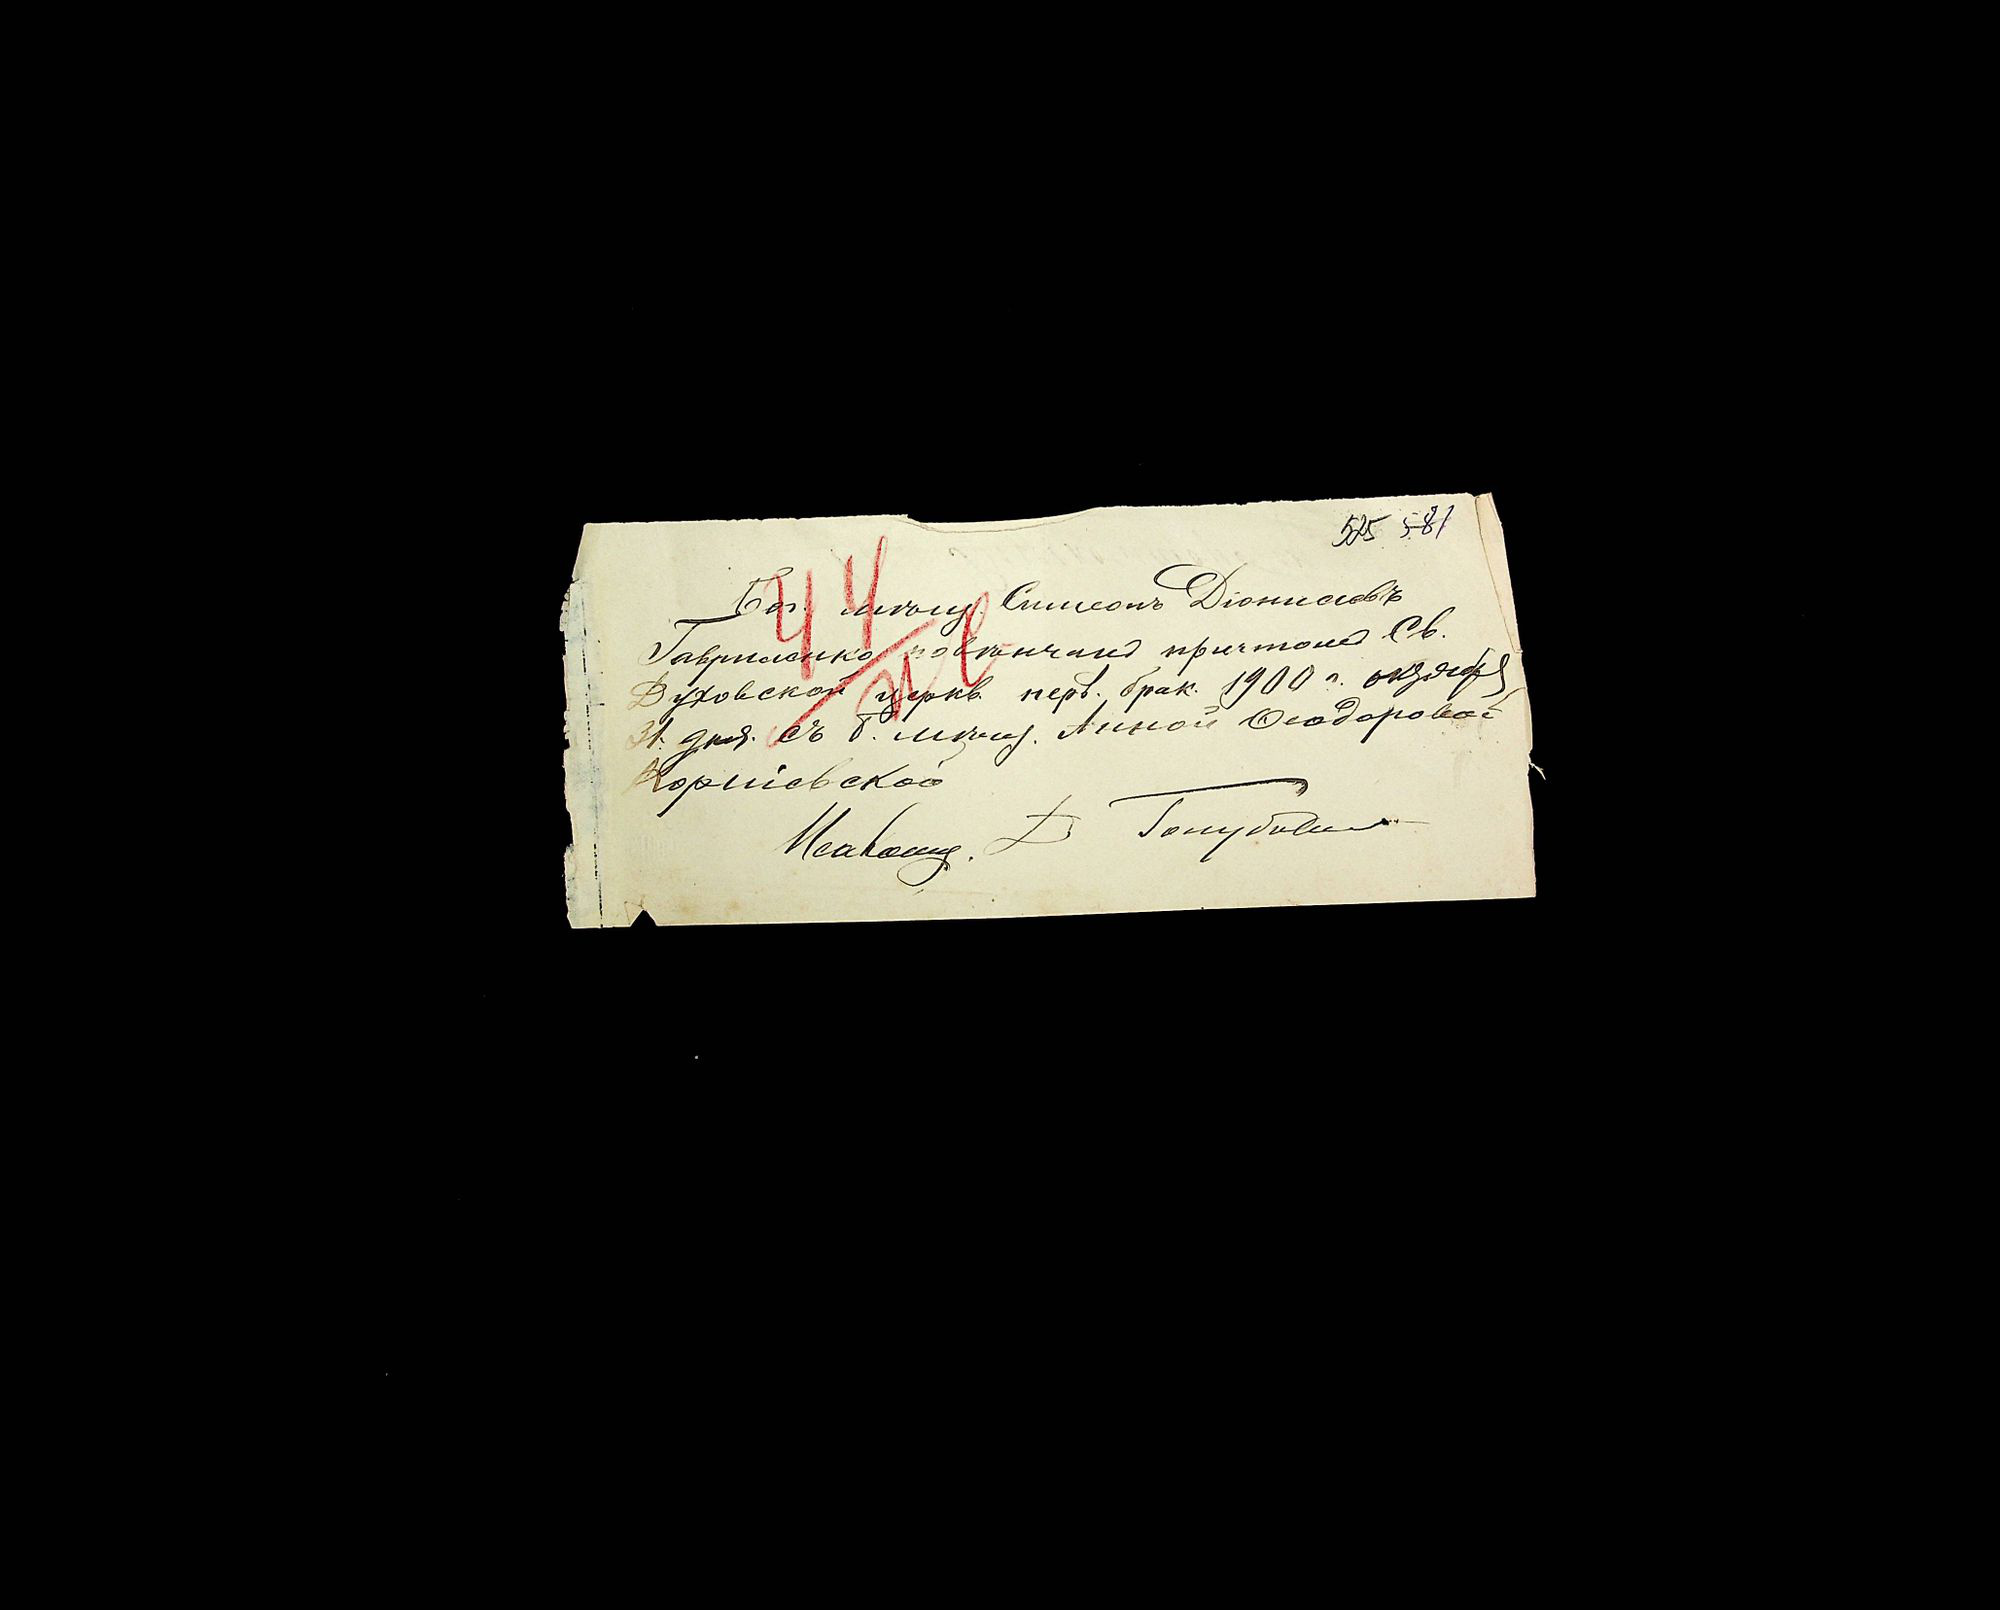 525 581
44
Бог. мѣщ. Симеонъ Діонисіевъ
Гавриленко повѣнчанъ причтомъ Св.
Духовской церкв. перв. брак. 1900 г. октября
31. дня. Съ б. мѣщ. Анной Ѳеодоровой
Коршевской
Псаломщ. Голубович